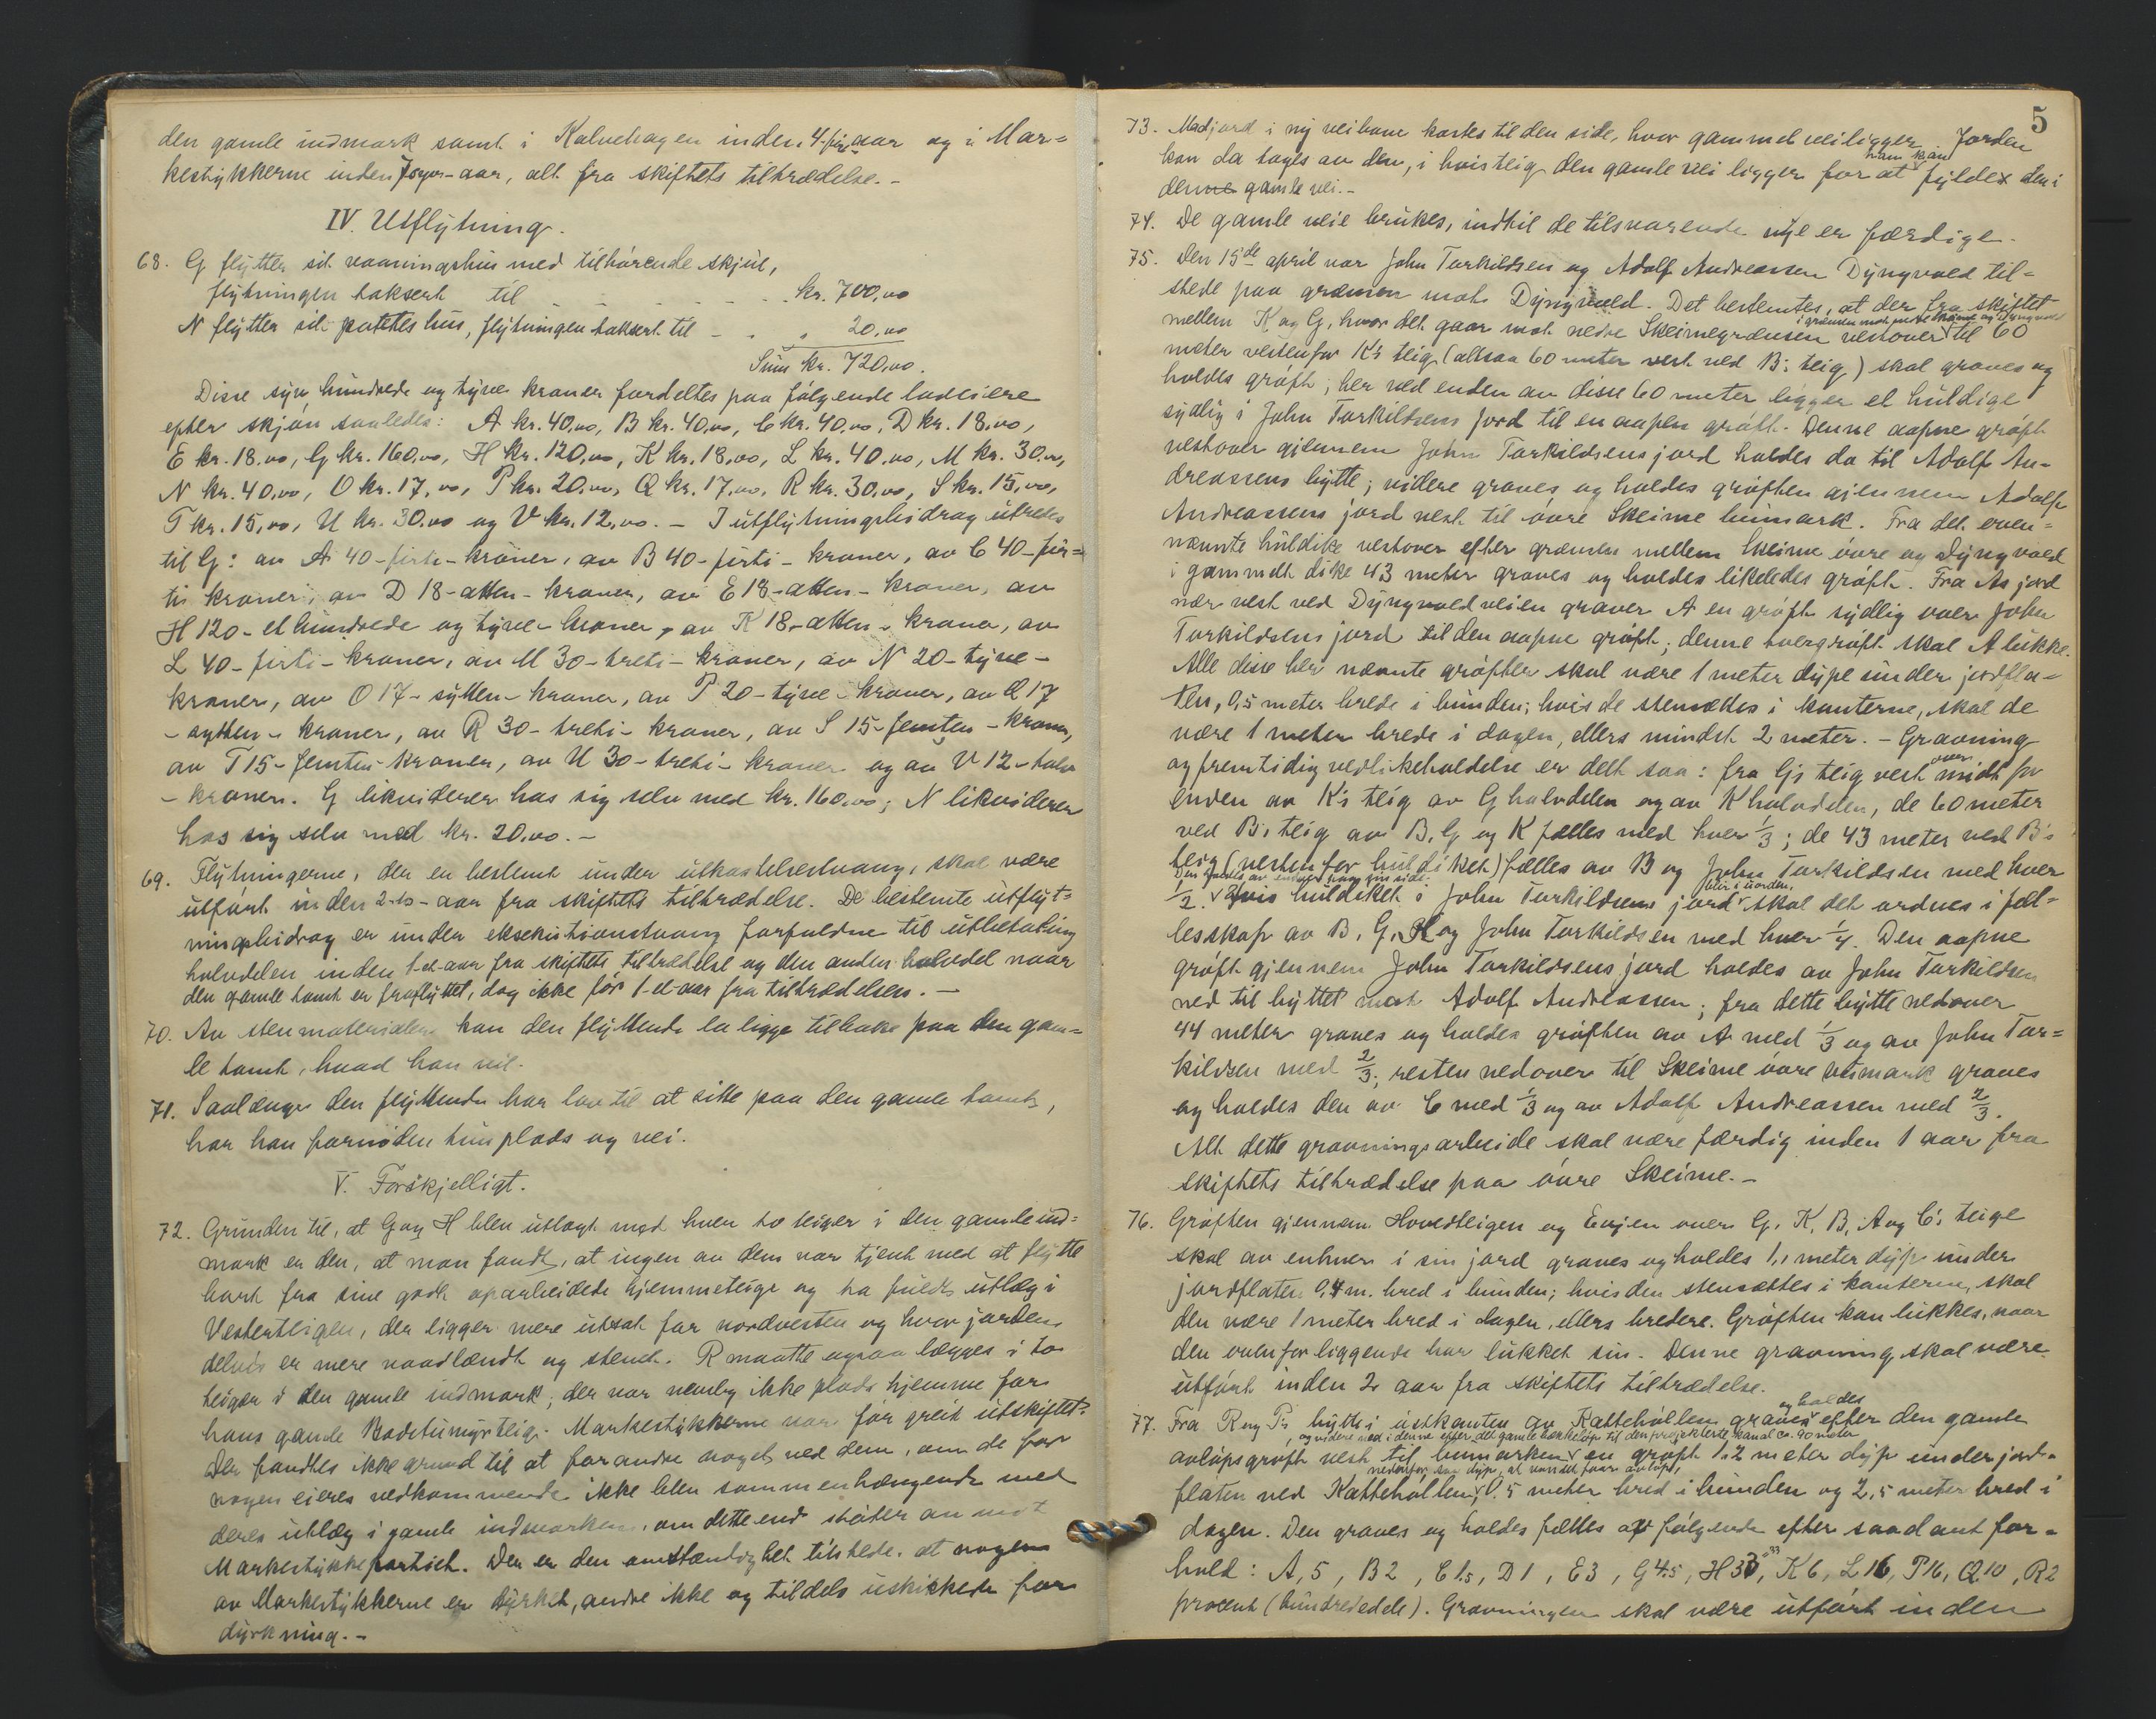 den gamle indmark samt i Kalvehagen inden 4-fire-aar og i Mar=
kestykkerne inden 7-syv-aar, alt fra skiftets tiltrædelse.-
IV. Utflytning.
68. G flytter sit vaaningshus med tilhørende skjul,
flytningen taksert til - - - - - - kr. 700,00
N flytter sit potetes hus, flytningen taksert til - - " 20,00
Sum kr. 720,00.
Disse syv hundrede og tyve kroner fordeltes paa følgende lodeiere
efter skjøn saaledes: A kr. 40,00, B kr. 40,00, C kr. 40,00, D kr. 18,00,
E kr. 18,00, G kr. 160,00, H kr. 120,00, K kr. 18,00, L kr. 40,00, M kr. 30,00,
N kr. 40,00, O kr. 17,00, P kr. 20,00, Q kr. 17,00, R kr. 30,00, S kr. 15,00,
T kr. 15,00, U kr. 30,00 og V kr. 12,00. - I utflytningsbidrag utredes
til G: av A 40-firti-kroner, av B 40-firti-kroner, av C 40-fir=
ti kroner, av D 18-atten-kroner, av E 18-atten-kroner, av
H 120-et hundrede og tyve-kroner, av K 18-atten-kroner, av
L 40-firti-kroner, av M 30-treti-kroner, av N 20-tyve-
kroner, av O 17-sytten-kroner, av P 20-tyve-kroner, av Q 17
-sytten-kroner, av R 30-treti-kroner, av S 15-femten-kroner,
av T 15-femten-kroner, av U 30-treti-kroner og av V 12-tolv
-kroner. G likviderer hos sig selv med kr. 160,00; N likviderer
hos sig selv med kr. 20,00.-
69. Flytningerne, der er bestemt under utkastelsestvang, skal være
utført inden 2-to-aar fra skiftets tiltrædelse. De bestemte utflyt=
ningsbidrag er under eksekutionstvang forfaldne til utbetaling
halvdelen inden 1-et-aar fra skiftets tiltrædelse og den anden halvdel naar
den gamle tomt er fraflyttet, dog ikke før 1-et-aar fra tiltrædelsen.-
70. Av stenmaterialene kan den flyttende la ligge tilbake paa den gam=
le tomt, hvad han vil.
71. Saalænge den flyttende har lov til at sitte paa den gamle tomt,
har han fornøden tunplads og vei.
V. Forskjelligt.
72. Grunden til, at G og H blev utlagt med hver to teiger i den gamle ind=
mark er den, at man fandt, at ingen av dem var tjent med at flytte
bort fra sine godt oparbeidede hjemmeteige og ta fuldt utlæg i
Vesterteigen, der ligger mere utsat for nordvesten og hvor jorden
delvis er mere vaadlændt og stenet. R maatte ogsaa lægges i to
teiger i den gamle indmark, der var nemlig ikke plads hjemme for
hans gamle Bodetumyrteig. Markestykkerne var før greit utskiftet.
Der fandtes ikke grund til at forandre noget ved dem, om de for
nogen eieres vedkommende ikke blev sammenhængende med
deres utlæg i gamle indmarken, om dette end støter an mot
Markestykkepartiet. Der er den omstændighet tilstede, at nogen
av Markestykkerne er dyrket, andre ikke og tildels uskikkede for
dyrkning.-
5
73. Madjord i ny veibane kastes til den side, hvor gammel vei ligger. Jorden
kan da tages av den, i hvis teig den gamle vei ligger for at han kan fylde den i
denne gamle vei.-
74. De gamle veie brukes, indtil de tilsvarende nye er færdige.
75. Den 15de april var John Torkildsen og Adolf Andreassen Dyngvold til=
stede paa grænsen mot Dyngvold. Det bestemtes, at der fra skiftet
mellem K og G, hvor det gaar mot nedre Skeimegrænsen vestover i grænsen mot nedre Skeime og Dyngvold til 60
meter vestenfor K's teig (altsaa 60 meter vest ved B's teig) skal graves og
holdes grøft; her ved enden av disse 60 meter ligger et huldige
sydlig i John Torkildsens jord til en aapen grøft. Denne aapne grøft
vestover gjennem John Torkildsens jord holdes da til Adolf An-
dreassens bytte; videre graves og holdes grøften gjennem Adolf
Andreassens jord vest til øvre Skeime bumark. Fra det oven=
nævnte huldike vestover efter grænsen mellem Skeime øvre og Dyngvold
i gammelt dike 43 meter graves og holdes likeledes grøft. Fra As jord
nær vest ved Dyngvoldveien graver A en grøft sydlig over John
Torkildsens jord til den aapne grøft; denne tvergrøft skal A lukke.
Alle disse her nævnte grøfter skal være 1 meter dype under jordfla-
ten, 0,5 meter brede i bunden; hvis de stensættes i kanterne, skal de
være 1 meter brede i dagen, ellers mindst 2 meter. - Gravning
og fremtidig vedlikeholdelse er delt saa: fra G's teig vestover midt for
enden av K's teig av G halvdelen og av K halvdelen, de 60 meter
ved B's teig av B, G og K fælles med hver 1/3; de 43 meter ved B's
teig (vestenfor huldiket) fælles av B og John Torkildsen med hver
1/2. Hvis huldiket i John Torkildsens jord blir i uorden, skal det ordnes i fæl=
lesskap av B, G, K og John Torkildsen med hver 1/4. Den aapne
grøft gjennem John Torkildsens jord holdes av John Torkildsen
ned til byttet mot Adolf Andreassen; fra dette bytte nedover
44 meter graves og holdes grøften av A med 1/3 og av John Tor=
kildsen med 2/3; resten nedover til Skeime øvre utmark graves
og holdes den av C med 1/3 og av Adolf Andreassen med 2/3.
Alt dette gravningsarbeide skal være færdig inden 1 aar fra
skiftets tiltrædelse paa øvre Skeime.-
76. Grøften gjennem Hovedteigen og Evjen over G, K, B, A og C's teige
skal av enhver i sin jord graves og holdes 1,1 meter dyp under
jordflaten 0,4 m. bred i bunden; hvis den stensættes i kanterne, skal
den være 1 meter bred i dagen, ellers bredere. Grøften kan lukkes, naar
den ovenforliggende har lukket sin. Denne gravning skal være
utført inden 2 aar fra skiftets tiltrædelse.
77. Fra R og P's bytte i østkanten av Kattehollen graves og holdes efter den gamle
avløpsgrøft vest til bumarken og videre ned i denne efter det gamle bækkeløp til den projekterte kanal ca. 90 meter en grøft 1.2 meter dyp under jord-
flaten ved Kattehollen, nedenfor saa dyp, at vandet faar avløp, 0.5 meter bred i bunden og 2,5 meter bred i
dagen. Den graves og holdes fælles av følgende efter saadant for=
hold: A,5, B 2, C 1.5, D 1, E 3, G 4.5, H 33, K 6, L 16, P 16, Q 10, R 2
procent (hundrededele). Gravningen skal være utført inden